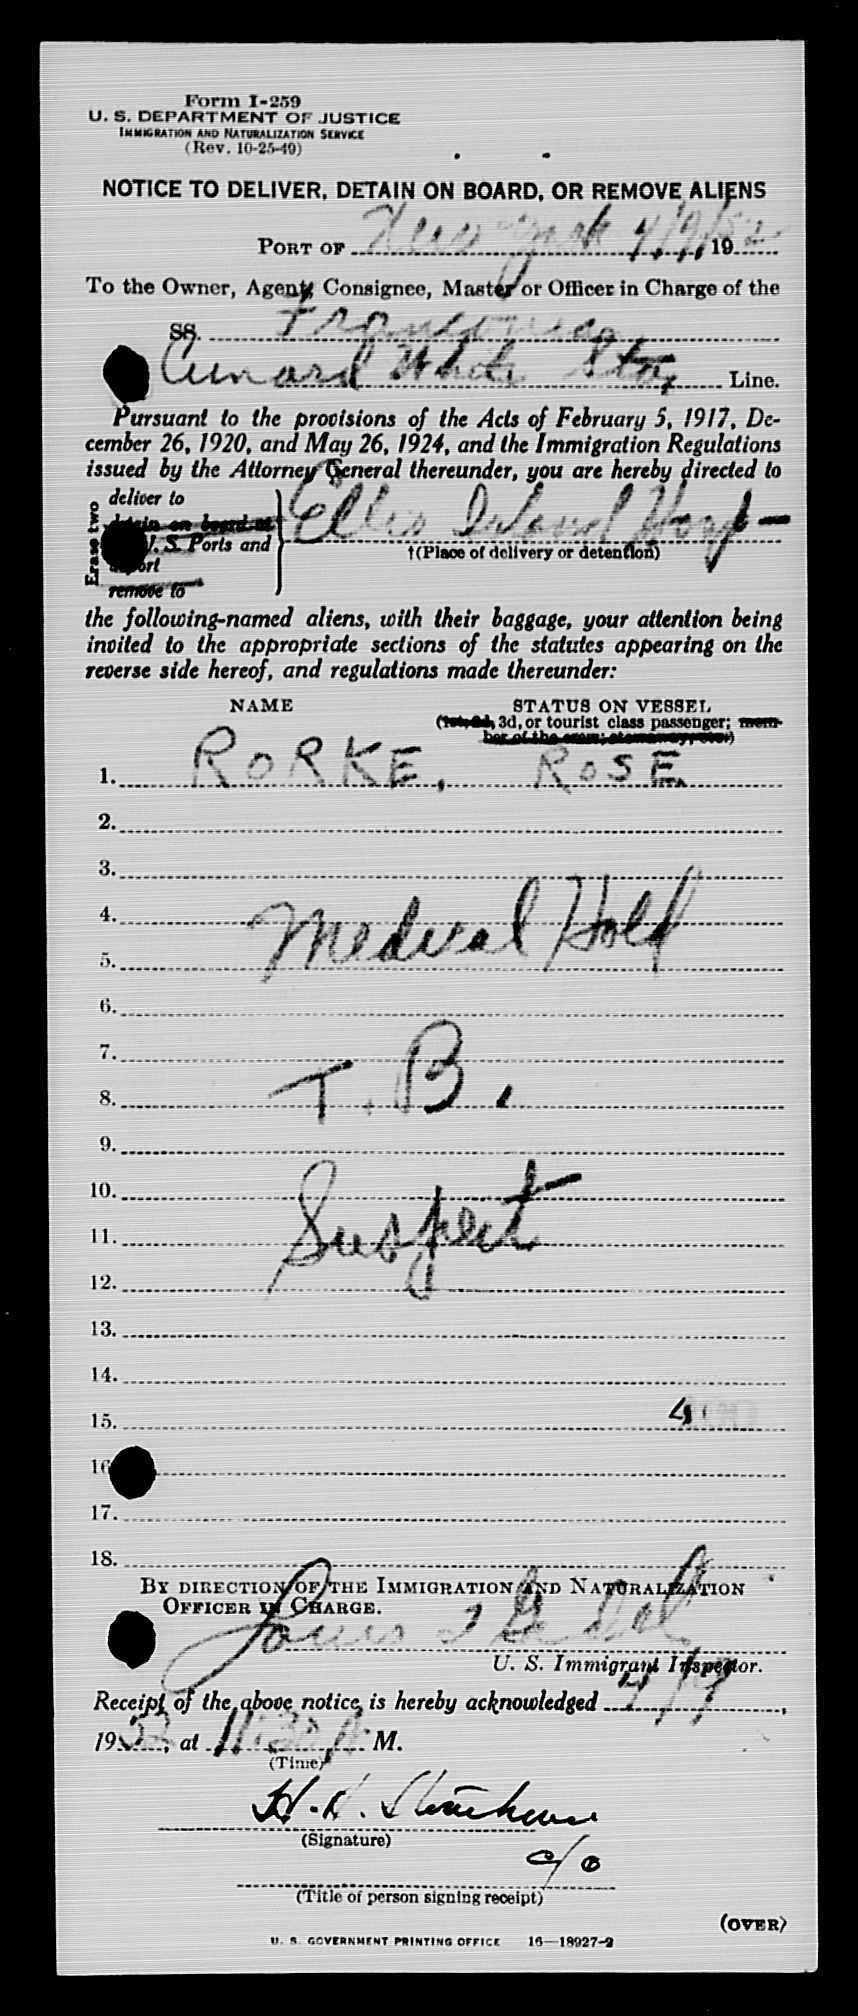 Form I-259
U. S. DEPARTMENT OF JUSTICE
IMMIGRATION AND NATURALIZATION SERVICE
(Rev. 10-25-49)
NOTICE TO DELIVER, DETAIN ON BOARD, OR REMOVE ALIENS
PORT OF New York 4/9/52 19
To the Owner, Agent, Consignee, Master or Officer in Charge of the
SS. Franconia
Cunard White Star Line.
Pursuant to the provisions of the Acts of February 5, 1917, De-
cember 26, 1920, and May 26, 1924, and the Immigration Regulations
issued by the Attorney General thereunder, you are hereby directed to
Erase two
deliver to
detain on board at
U. S. Ports and
deport
remove to
Ellis Island Hosp
†(Place of delivery or detention)
the following-named aliens, with their baggage, your attention being
invited to the appropriate sections of the statutes appearing on the
reverse side hereof, and regulations made thereunder:
NAME STATUS ON VESSEL
(1st, 2d, 3d, or tourist class passenger; mem-
ber of the crew; stowaway, etc.)
1. RORKE, ROSE
2.
3.
4. Medical Hold
5.
6.
7.
8. T. B.
9.
10.
11. Suspect
12.
13.
14.
15. 4
16
17.
18.
BY DIRECTION OF THE IMMIGRATION AND NATURALIZATION
OFFICER IN CHARGE.
Louis
U. S. Immigrant Inspector.
Receipt of the above notice is hereby acknowledged 4/9,
1952, at 11:30 A M.
(Time)
H. H.
(Signature)
c/o
(Title of person signing receipt)
(OVER)
U. S. GOVERNMENT PRINTING OFFICE 16—18927-2